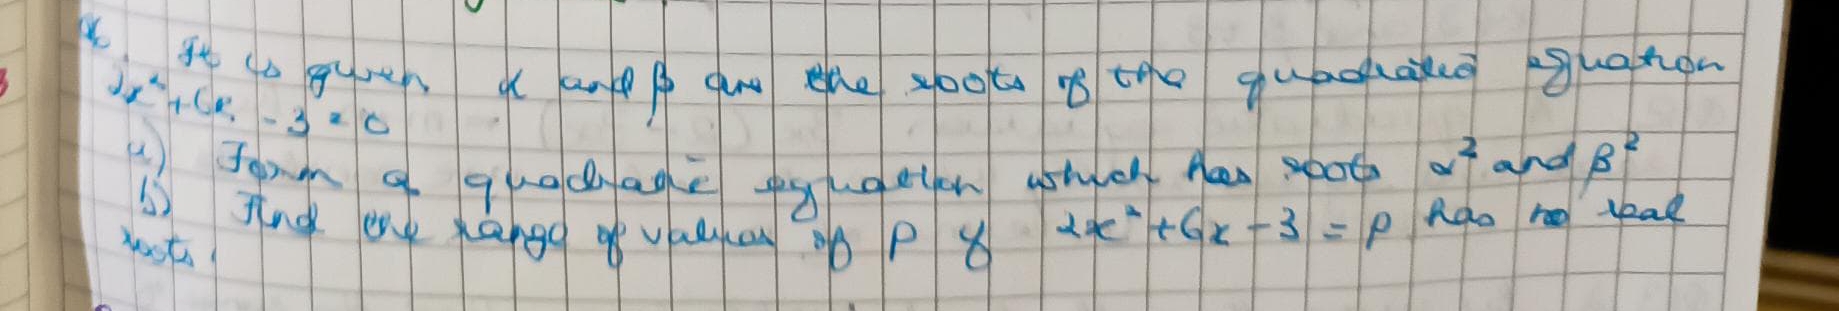 It is given α and β are the roots of the quadratic equation
2x² + 6x - 3 = 0
a) Form a quadratic equation which has roots α² and β²
b) Find the range of values of p if 2x² + 6x - 3 = p has no real
roots.